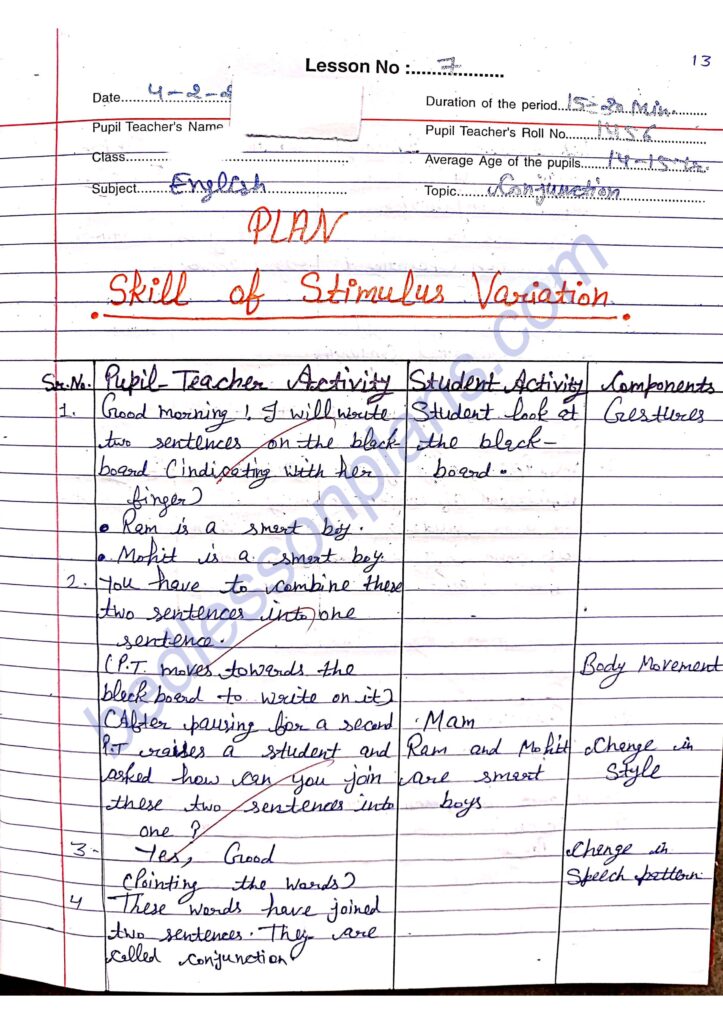 13
Lesson No :........7..................
Date.......4-2-2
Duration of the period 15-20 Min.
Pupil Teacher's Name
Pupil Teacher's Roll No. 1456
Class
Average Age of the pupils 14-15
Subject English
Topic Conjunction
PLAN
Skill of Stimulus Variation.
Sr.No. Pupil-Teacher Activity Student Activity Components
1. Good morning! I will write Student look at Gestures
two sentences on the black- the black-
board (indicating with her board.
finger)
• Ram is a smart boy.
• Mohit is a smart boy.
2. You have to combine these
two sentences into one
sentence.
(P.T. moves towards the Body Movement
black board to write on it)
(After pausing for a second Mam
P.T raises a student and Ram and Mohit Change in
asked how can you join are smart Style
these two sentences into boys
one?
3- Yes, Good Change in
(Pointing the words) Speech pattern
4 These words have joined
two sentences. They are
called conjunction
bedlessonplans.com